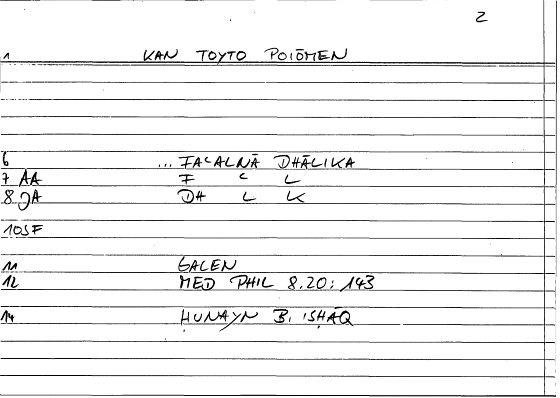 2
1 KAN TOYTO POIŌMEN
6 ... FAʿALNĀ DHĀLIKA
7 AA F ʿ L
8 JA DH L K
10SF
11 GALEN
12 MED PHIL 8.20: 143
14 ḤUNAYN B. ISḤĀQ